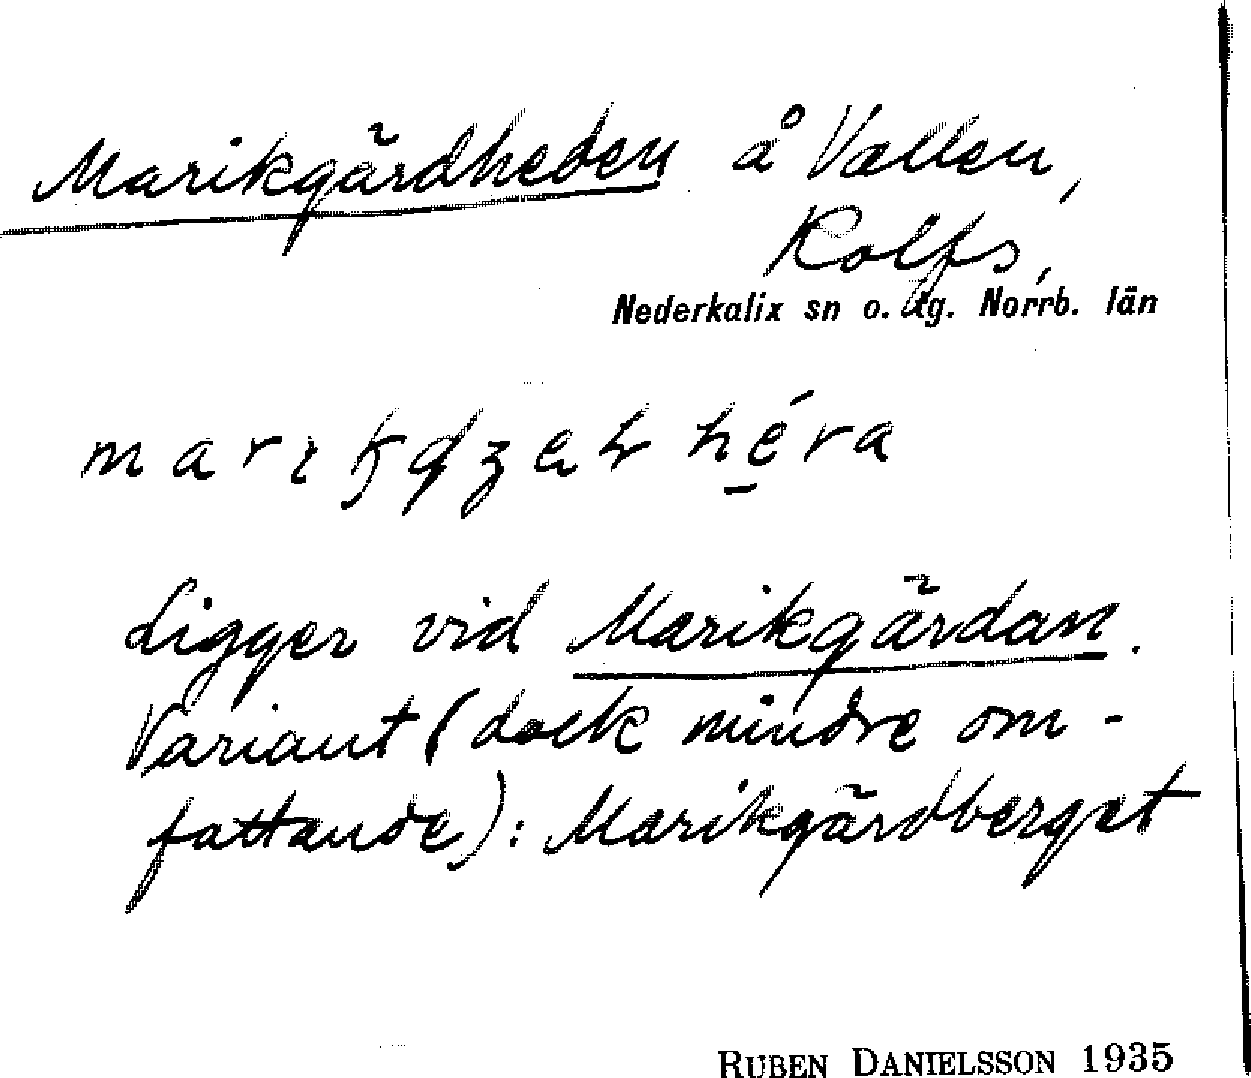 Marikgärdheden å Vallen,
Rolfs,
Nederkalix sn o. tg. Norrb. län
héra
Ligger vid Marikgärdan.
Variant (dock mindre om-
fattande): Marikgärdberget
RUBEN DANIELSSON 1935